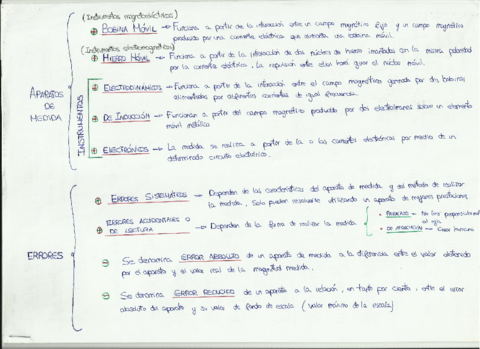 (Instrumentos magnetoeléctricos)
BOBINA MÓVIL — Funciona a partir de la interacción entre un campo magnético fijo y un campo magnético
producido por una corriente eléctrica que atraviesa una bobina móvil.
(Instrumentos electromagnéticos)
HIERRO MÓVIL — Funciona a partir de la interacción de dos núcleos de hierro imantados con la misma polaridad
por la corriente eléctrica. La repulsión entre ellos hará girar el núcleo móvil.
APARATOS
DE
MEDIDA
INSTRUMENTOS
ELECTRODINÁMICOS — Funciona a partir de la interacción entre el campo magnético generado por dos bobinas
alimentadas por corrientes de igual frecuencia.
DE INDUCCIÓN — Funcionan a partir del campo magnético producido por dos electroimanes sobre un elemento
móvil metálico
ELECTRÓNICOS — La medida se realiza a partir de la corrientes electrónicas por medio de un
determinado circuito electrónico.
ERRORES
ERRORES SISTEMÁTICOS — Dependen de las características del aparato de medida y del método de realizar
la medida. Solo pueden resolverse utilizando un aparato de mayores prestaciones.
ERRORES ACCIDENTALES O
DE LECTURA — Dependen de la forma de realizar la medida.
PARALAJE — No
DE APRECIACIÓN — Error humano
Se denomina ERROR ABSOLUTO de un aparato de medida a la diferencia entre el valor obtenido
por el aparato y el valor real de la magnitud medida.
Se denomina ERROR REDUCIDO de un aparato a la relación, en tanto por ciento, entre el error
absoluto del aparato y su valor de fondo de escala (valor máximo de la escala)